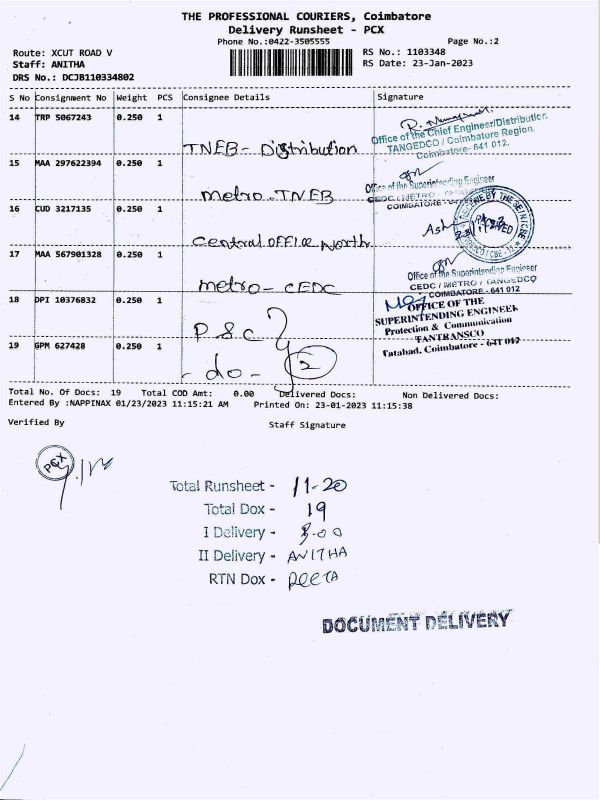 THE PROFESSIONAL COURIERS, Coimbatore
Delivery Runsheet - PCX
Phone No.:0422-3505555
Page No.:2
Route: XCUT ROAD V
RS No.: 1103348
Staff: ANITHA
RS Date: 23-Jan-2023
DRS No.: DCJB110334802
S No Consignment No Weight PCS Consignee Details Signature
14 TRP 5067243 0.250 1
TNEB - Distribution
Office of the Chief Engineer/Distribution
TANGEDCO / Coimbatore Region.
Coimbatore- 641 012.
15 MAA 297622394 0.250 1
metro - TNEB
Office of the Superintending Engineer
CEDC / METRO
COIMBATORE
16 CUD 3217135 0.250 1
Central OFFICE North
17 MAA 567901328 0.250 1
metro - CEDC
Office of the Superintending Engineer
CEDC / METRO / TANGEDCO
COIMBATORE - 641 012
18 DPI 10376832 0.250 1
P&C
OFFICE OF THE
SUPERINTENDING ENGINEER
Protection & Communication
TANTRANSCO
Tatabad, Coimbatore - 641 012
19 GPM 627428 0.250 1
- do - 2
Total No. Of Docs: 19 Total COD Amt: 0.00 Delivered Docs: Non Delivered Docs:
Entered By :NAPPINAX 01/23/2023 11:15:21 AM Printed On: 23-01-2023 11:15:38
Verified By
Staff Signature
PCX
Total Runsheet - 11-20
Total Dox - 19
I Delivery - 3-00
II Delivery - ANITHA
RTN Dox - REETA
DOCUMENT DELIVERY